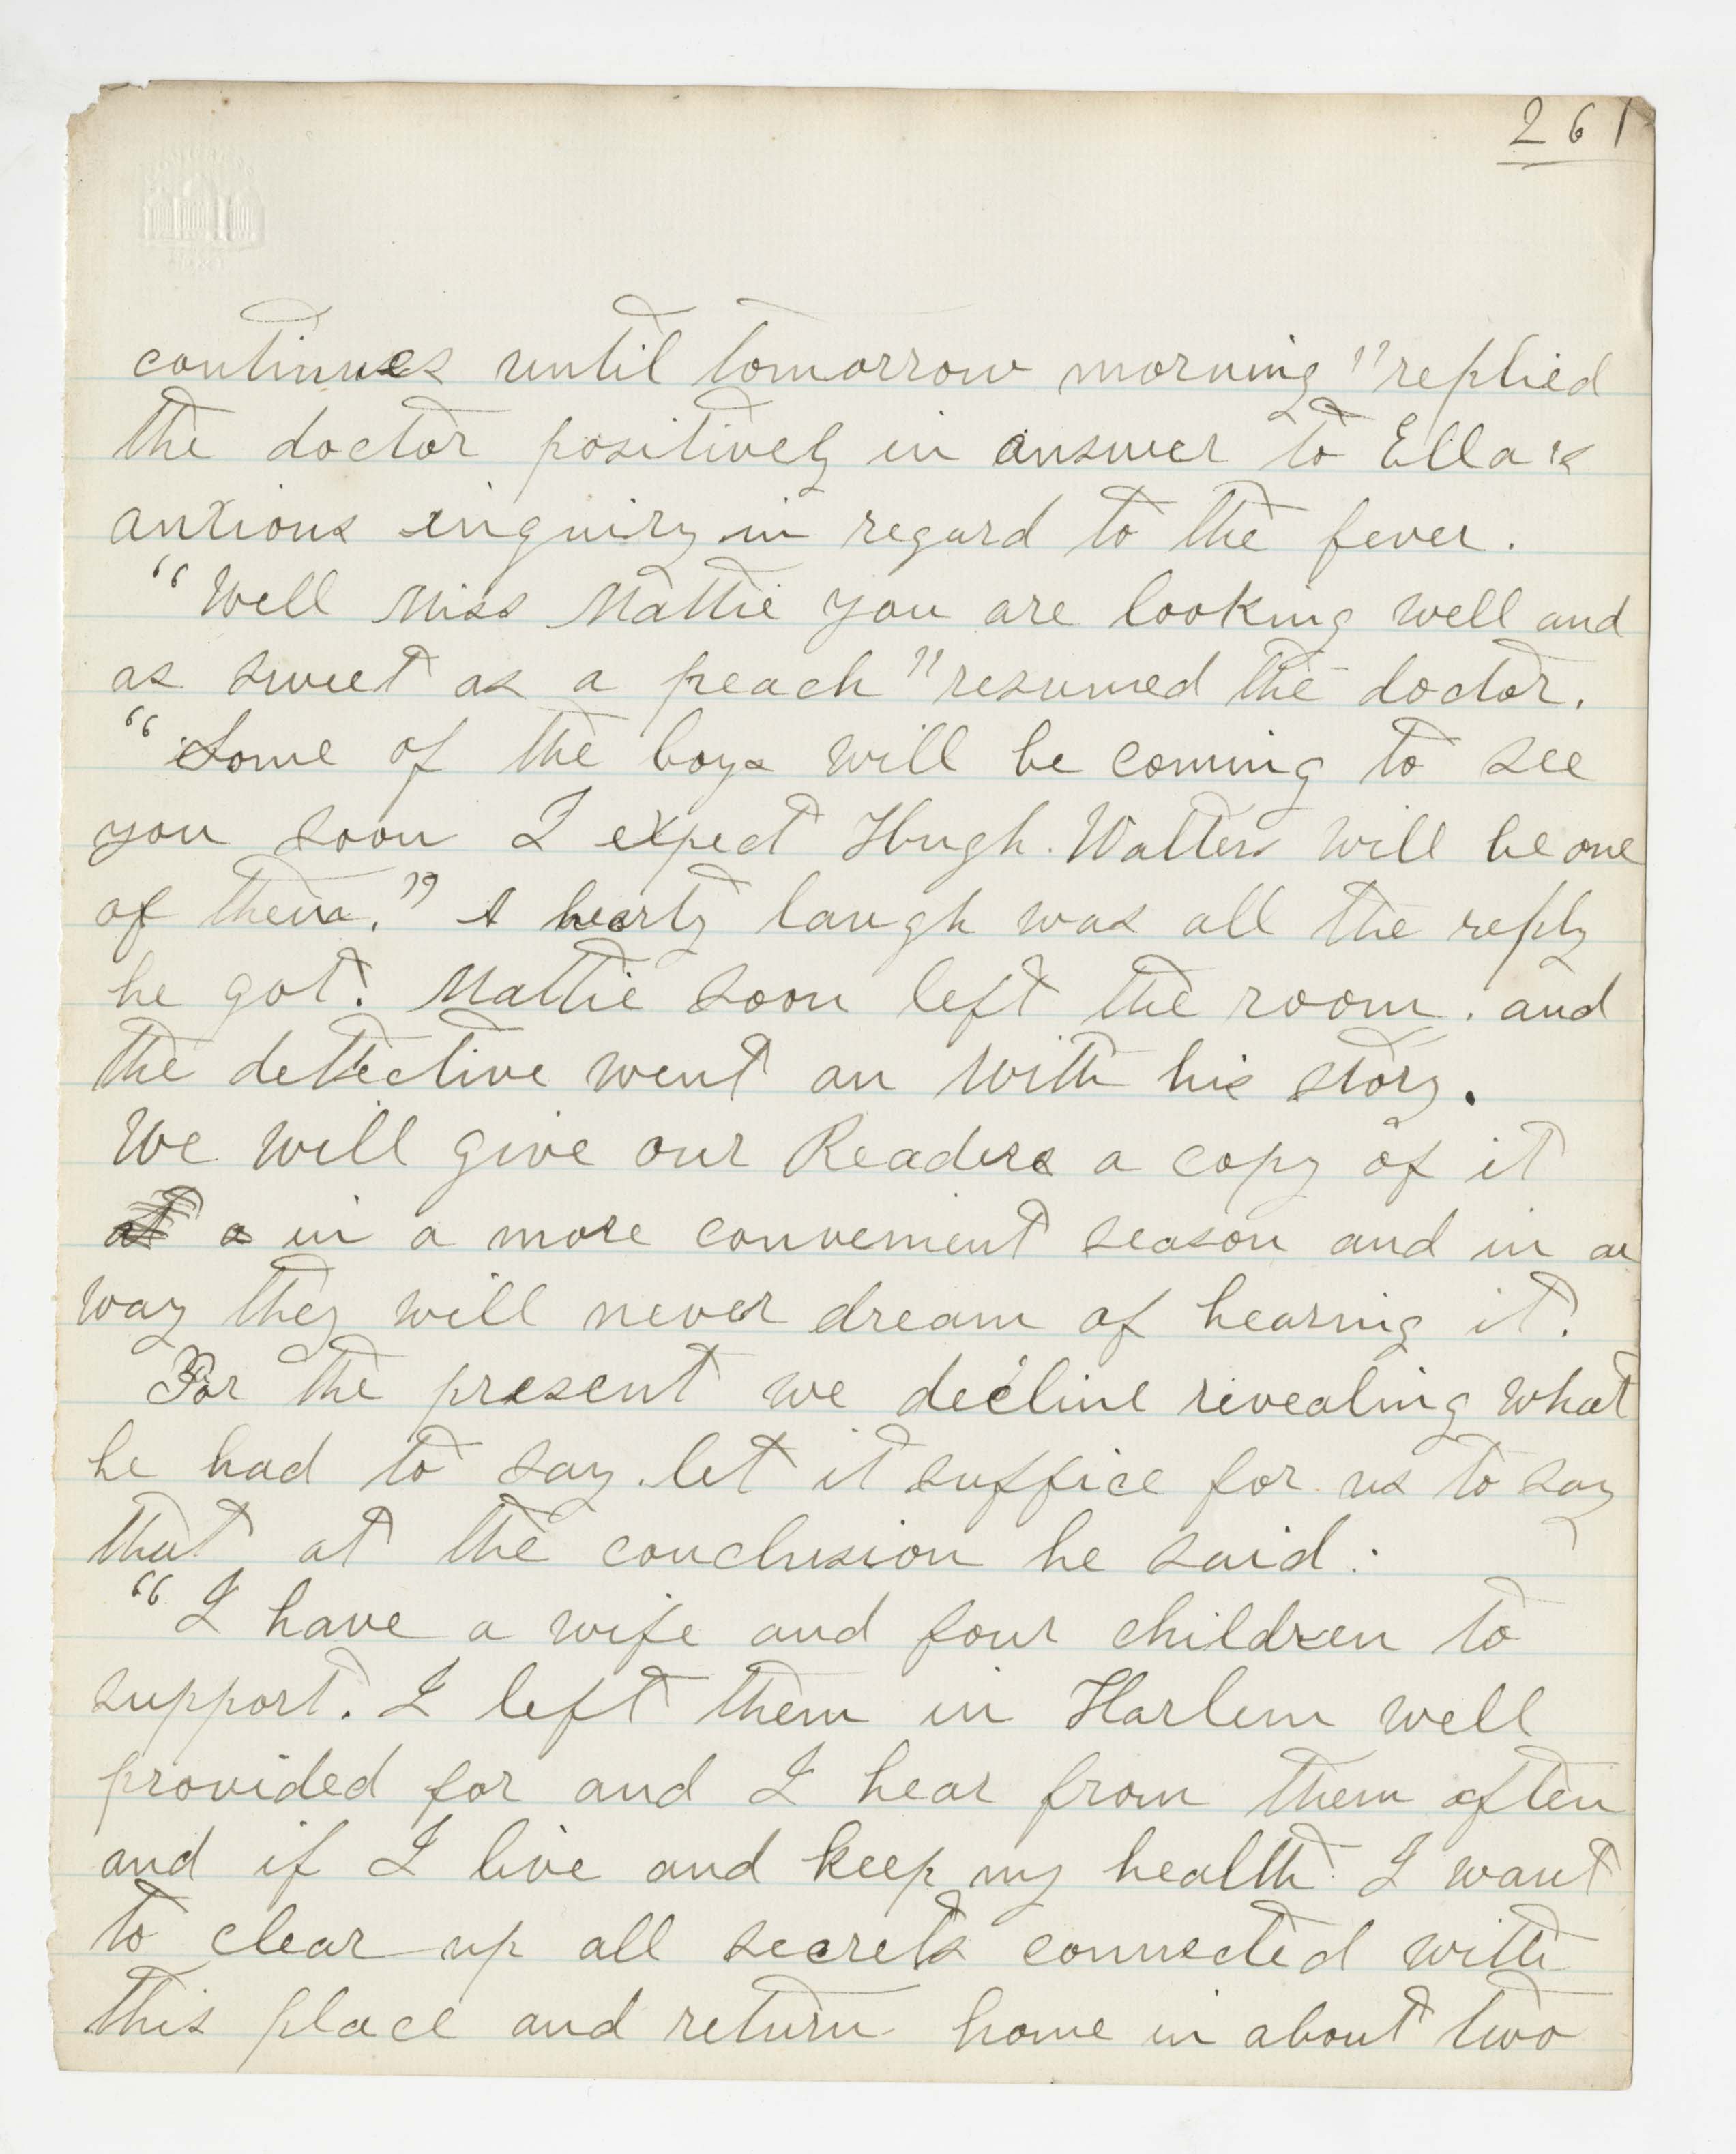 261
continues until tomorrow morning" replied
the doctor positively in answer to Ella's
anxious inquiry in regard to the fever.
"Well Miss Mattie you are looking well and
as sweet as a peach" resumed the doctor.
"Some of the boys will be coming to see
you soon I expect Hugh. Walters will be one
of them." A hearty laugh was all the reply
he got. Mattie soon left the room. and
the detective went on with his story.
We will give our Readers a copy of it
at a in a more convenient season and in a
way they will never dream of hearing it.
For the present we decline revealing what
he had to say. let it suffice for us to say
that at the conclusion he said:
"I have a wife and four children to
support. I left them in Harlem well
provided for and I hear from them often
and if I live and keep my health. I want
to clear up all secrets connected with
this place and return home in about two